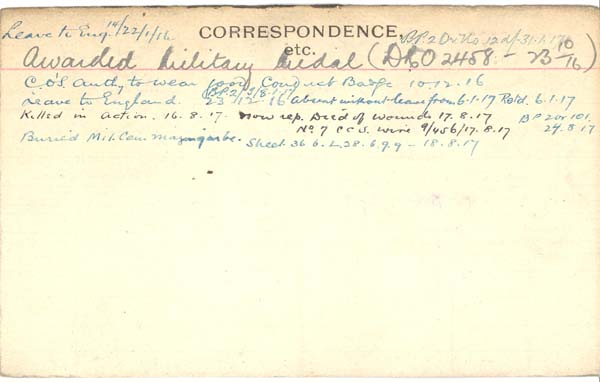 Leave to Eng. 14/22/1/16 CORRESPONDENCE, B.P.2 D. 12 d/31.1.17
etc.
Awarded Military Medal (DRO 2458 - 23/10/16)
C.O's Authy to wear Good Conduct Badge 10.12.16
B.P.2
Leave to England. 23.12.16 Absent without leave from 6.1.17 Retd. 6.1.17
Killed in Action. 16.8.17. Now rep. Died of wounds 17.8.17 BP 20r 101
No 7 C.C.S. wire 9/456/17.8.17 24.8.17
Buried Mil. Cem. Mazingarbe. Sheet. 36 b. L.28.b.9.9 - 18.8.17